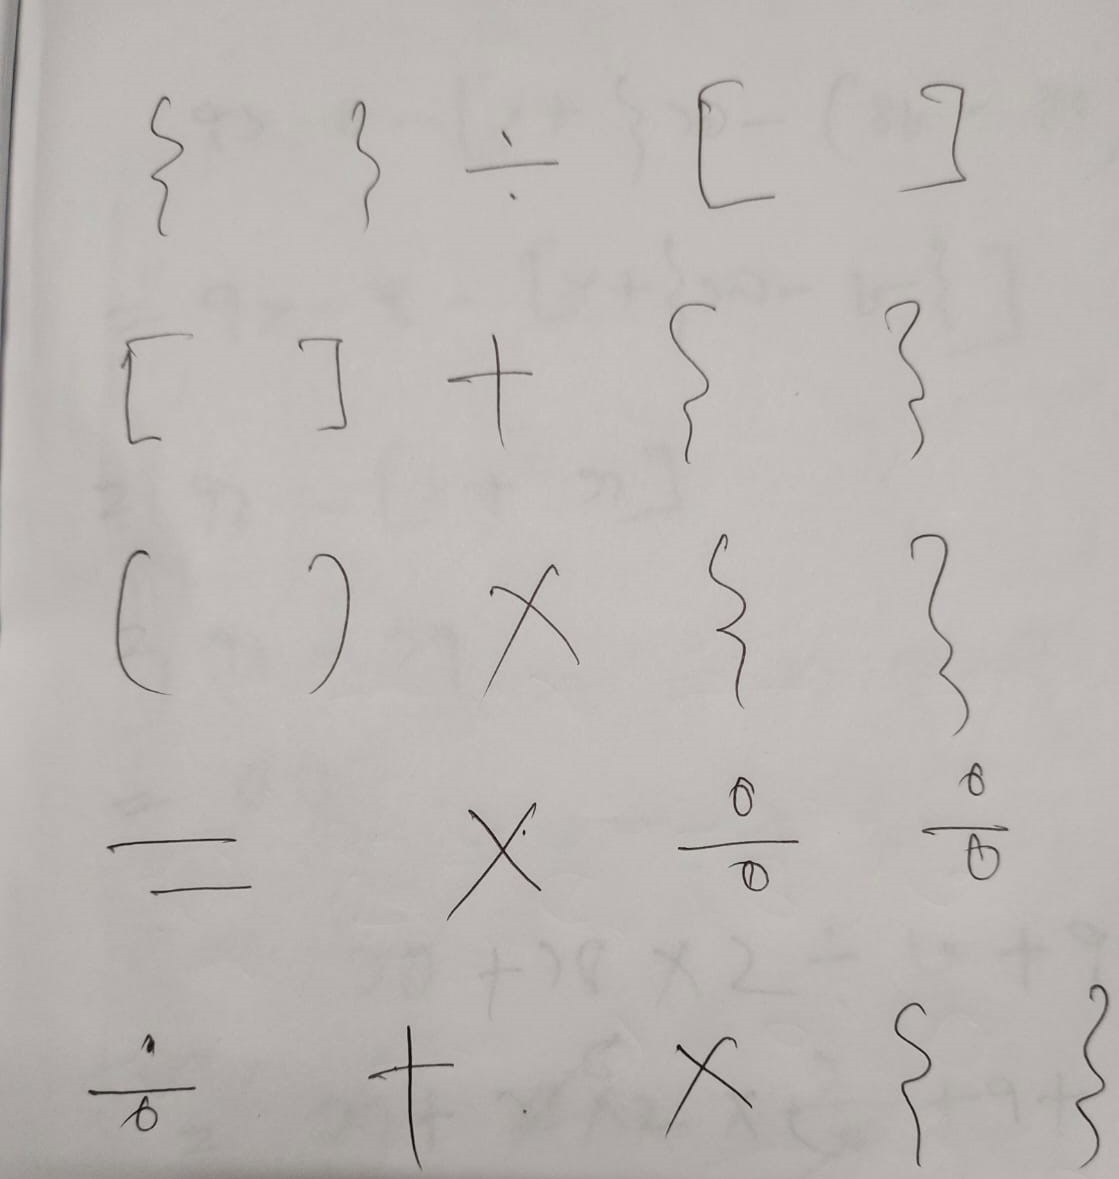 { } ÷ [ ]
[ ] + { }
( ) × { }
= × ÷ ÷
÷ + × { }